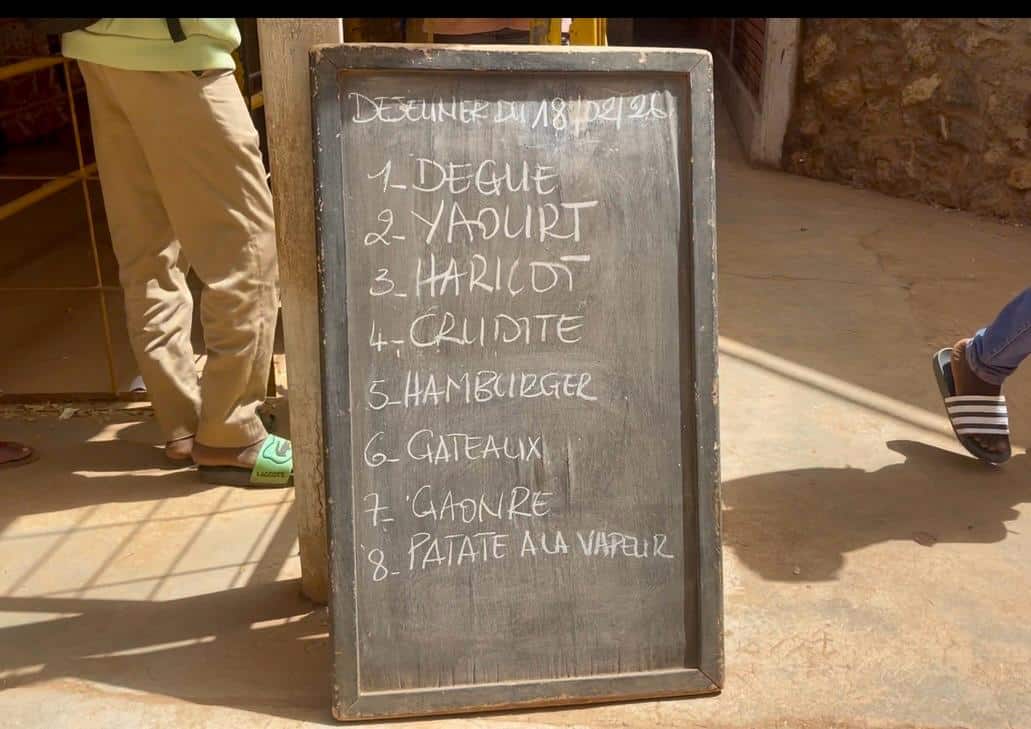 DEJEUNER DU 18/02/26
1_ DEGUE
2_ YAOURT
3_ HARICOT
4_ CRUDITE
5_ HAMBURGER
6_ GATEAUX
7_ GAONRE
8_ PATATE A LA VAPEUR
LACOSTE